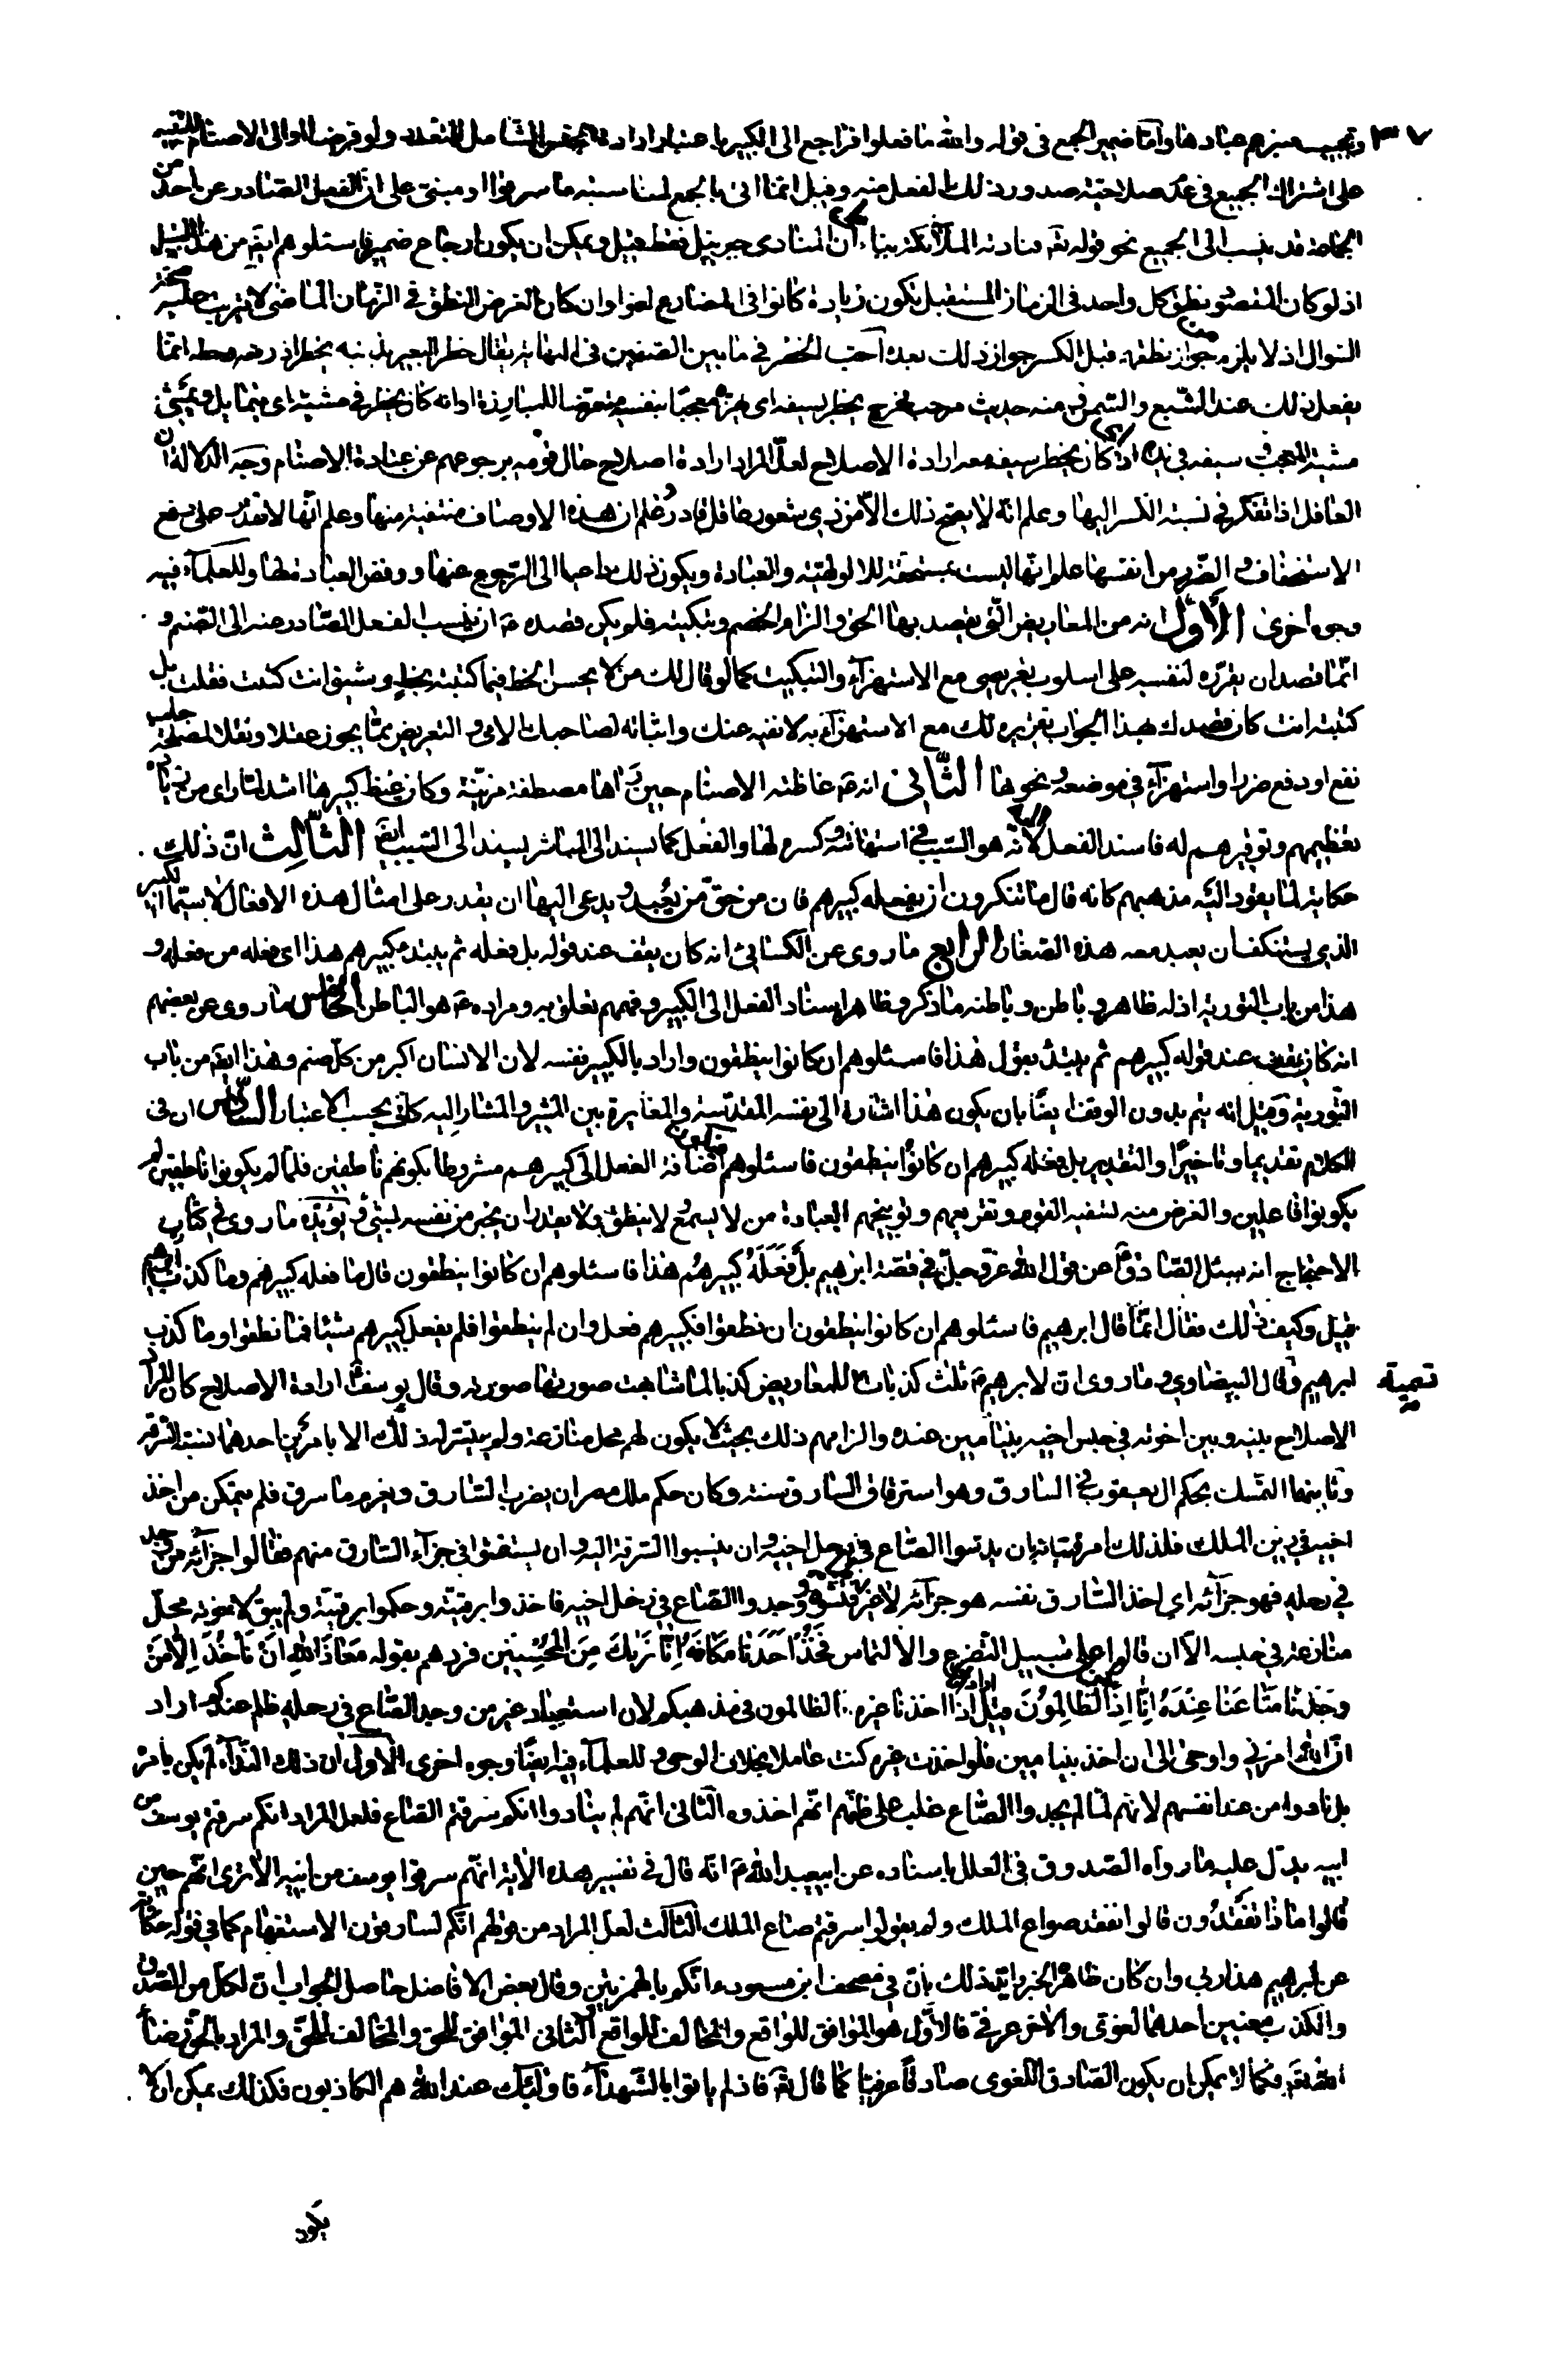 ٣٠٧
وتعجيب منهم عبادها وأما ضمير الجمع في قوله والله ما فعلوا فراجع الى الكبير باعتبار ارادة الجنس الشامل للتعدد ولو فرضا او الى الاصنام للتنبيه
على اشتراك الجميع في عدم صلاحية صدور ذلك الفعل منه وقيل انما اتى بالجمع لمناسبة ما سرقوا او مبنى على ان الفعل الصادر عن احد من
الجماعة قد ينسب الى الجميع نحو قوله تعالى فنادته الملائكة بناء على ان المنادى جبرئيل فقط قيل ويمكن ان يكون ارجاع ضمير فاسئلوهم ايضا من هذا القبيل
اذ لو كان المقصود نطق كل واحد في الزمان المستقبل تكون زيادة كانوا في المضارع لغوا وان كان الغرض النطق في الزمان الماضي لا يترتب عليه صحة
السؤال اذ لا يلزم من جواز نطقه قبل الكسر جواز ذلك بعده احب الخطر في ما بين الصفين في النهاية يقال خطر البعير بذنبه يخطر اذا رفعه وحطه انما
يفعل ذلك عند الشبع والسمن ومنه حديث مرحب فخرج يخطر بسيفه اى يهزه معجبا بنفسه متعرضا للمبارزة او انه كان يخطر في مشيته اى يتمايل ويمشي
مشية المعجب وسيفه في يده اى كان يخطر سيفه معه ارادة الاصلاح لعل المراد ارادة اصلاح حال قومه برجوعهم عن عبادة الاصنام وجه الدلالة ان
العاقل اذا تفكر في نسبة الكسر اليها وعلم انه لا يصح ذلك الا من ذي شعور عاقل قادر وعلم ان هذه الاوصاف منتفية منها وعلم انها لا تقدر على دفع
الاستخفاف والضرر من انفسها علم انها ليست بمستحقة للالوهية والعبادة ويكون ذلك داعيا الى الرجوع عنها ورفض العبادة لها وللعلماء فيه
وجوه اخرى الاول انه من المعاريض التى يقصد بها الحق والزام الخصم وتبكيته فلم يكن قصده ع ان ينسب الفعل الصادر عنه الى الصنم و
انما قصد ان يقرره لنفسه على اسلوب تعريضي مع الاستهزاء والتبكيت كما لو قال لك من لا يحسن الخط فيما كتبته بخط رشيق انت كتبت فقلت بل
كتبته انت كان قصدك بهذا الجواب تقريره لك مع الاستهزاء به لا نفيه عنك واثباته لصاحبك الامي والتعريض مما يجوز عقلا ونقلا لمصلحة جلب
نفع او دفع ضرر او استهزاء في موضعه ونحوها الثاني انه ع غاظته الاصنام حين رآها مصطفة مزينة وكان غيظ كبيرها اشد لما راى من زيادة
تعظيمهم وتوقيرهم له فاسند الفعل اليه لانه هو السبب في استهانته وكسره لها والفعل كما يسند الى المباشر يسند الى السبب ايضا الثالث ان ذلك
حكاية لما يقود اليه مذهبهم كانه قال ما تنكرون ان يفعله كبيرهم فان من حق من يعبد ويدعى اليها ان يقدر على امثال هذه الافعال لا سيما الكبير
الذي يستنكف ان يعبد معه هذه الصغار الرابع ما روى عن الكسائي انه كان يقف عند قوله بل فعله ثم يبتدء كبيرهم هذا اى فعله من فعله و
هذا من باب التورية اذ له ظاهر وباطن وباطنه ما ذكر وظاهره اسناد الفعل الى الكبير وفهمهم تعلق به ومراده ع هو الباطن الخامس ما روى عن بعضهم
انه كان يقف عند قوله كبيرهم ثم يبتدئ بقول هذا فاسئلوهم ان كانوا ينطقون واراد بالكبير نفسه لان الانسان اكبر من كل صنم وهذا ايضا من باب
التورية وقيل انه يتم بدون الوقف ايضا بان يكون هذا اشارة الى نفسه المقدسة والمغايرة بين المشير والمشار اليه كاف بحسب الاعتبار السادس ان في
الكلام تقديما وتاخيرا والتقدير بل فعله كبيرهم ان كانوا ينطقون فاسئلوهم فيكون اضافة الفعل الى كبيرهم مشروطا بكونهم ناطقين فلما لم يكونوا ناطقين لم
يكونوا فاعلين والغرض منه تسفيه القوم وتقريعهم وتوبيخهم لعبادة من لا يسمع لا ينطق ولا يقدر ان يخبر من نفسه بشئ ويؤيده ما روى في كتاب
الاحتجاج انه سئل الصادق ع عن قول الله عز وجل في قصة ابرهيم بل فعله كبيرهم هذا فاسئلوهم ان كانوا ينطقون قال ما فعله كبيرهم وما كذب ابرهيم
قيل وكيف ذلك فقال انما قال ابرهيم فاسئلوهم ان كانوا ينطقون ان نطقوا فكبيرهم فعل وان لم ينطقوا فلم يفعل كبيرهم شيئا فما نطقوا وما كذب
ابرهيم وقال البيضاوي وما روى ان لابرهيم ع ثلث كذبات للمعاريض كذبا لما شابهت صورتها صورته وقال يوسف ع ارادة الاصلاح كان المراد
الاصلاح بينه وبين اخوته في حبس اخيه بنيامين عنده والزامهم ذلك بحيث لا يكون لهم محل منازعة ولم يتيسر له ذلك الا بامرين احدهما نسبة السرقة
وثانيهما التمسك بحكم ال يعقوب في السارق وهو استرقاق السارق سنة وكان حكم ملك مصر ان يضرب السارق ويغرم ما سرق فلم يتمكن من اخذ
اخيه في دين الملك فلذلك امر فتيانه بان يدسوا الصاع في رحل اخيه وان ينسبوا السرقة اليه وان يستفتوا في جزاء السارق منهم فقالوا جزائه من وجد
في رحله فهو جزائه اي اخذ السارق نفسه هو جزائه لا غير ففتشوا ووجدوا الصاع في رحل اخيه فاخذوا برقبته وحكموا برقيته ولم يبق لاخوته محل
منازعة في حبسه الا ان قالوا على سبيل التضرع والالتماس فخذ احدنا مكانه انا نريك من المحسنين فردهم بقوله معاذ الله ان نأخذ الا من
وجدنا متاعنا عنده انا اذا لظالمون قيل اراد اذا اخذنا غيره الظالمون في مذهبكم لان استعباد غير من وجد الصاع في رحله ظلم عندكم او اراد
ان الله امرني واوحى الى ان اخذ بنيامين فلو اخذت غيره كنت عاملا بخلاف الوحى وللعلماء فيه ايضا وجوه اخرى الاول ان ذلك النداء لم يكن بامره
بل نادوا من عند انفسهم لانهم لما لم يجدوا الصاع غلب على ظنهم انهم اخذوه الثاني انهم لم ينادوا انكم سرقتم الصاع فلعل المراد انكم سرقتم يوسف من
ابيه يدل عليه ما رواه الصدوق في العلل باسناده عن ابيعبد الله ع انه قال في تفسير هذه الاية انهم سرقوا يوسف من ابيه الا ترى انهم حين
قالوا ماذا تفقدون قالوا نفقد صواع الملك ولم يقولوا سرقتم صاع الملك الثالث لعل المراد من قولهم انكم لسارقون الاستفهام كما في قوله حكاية
عن ابرهيم هذا ربي وان كان ظاهره الخبر وايد ذلك بان في مصحف ابن مسعود ءانكم بالهمزتين وقال بعض الافاضل حاصل الجواب ان لكل من الصدق
والكذب معنيين احدهما لغوي والآخر عرفي فالاول هو الموافق للواقع والمخالف للواقع والثاني الموافق للحق والمخالف للحق والمراد بالحق رضاء
الله تعالى فكما لا يمكن ان يكون الصادق اللغوى صادقا عرفيا كما قال تعالى فاذ لم ياتوا بالشهداء فاولئك عند الله هم الكاذبون فكذلك يمكن ان لا
يكون